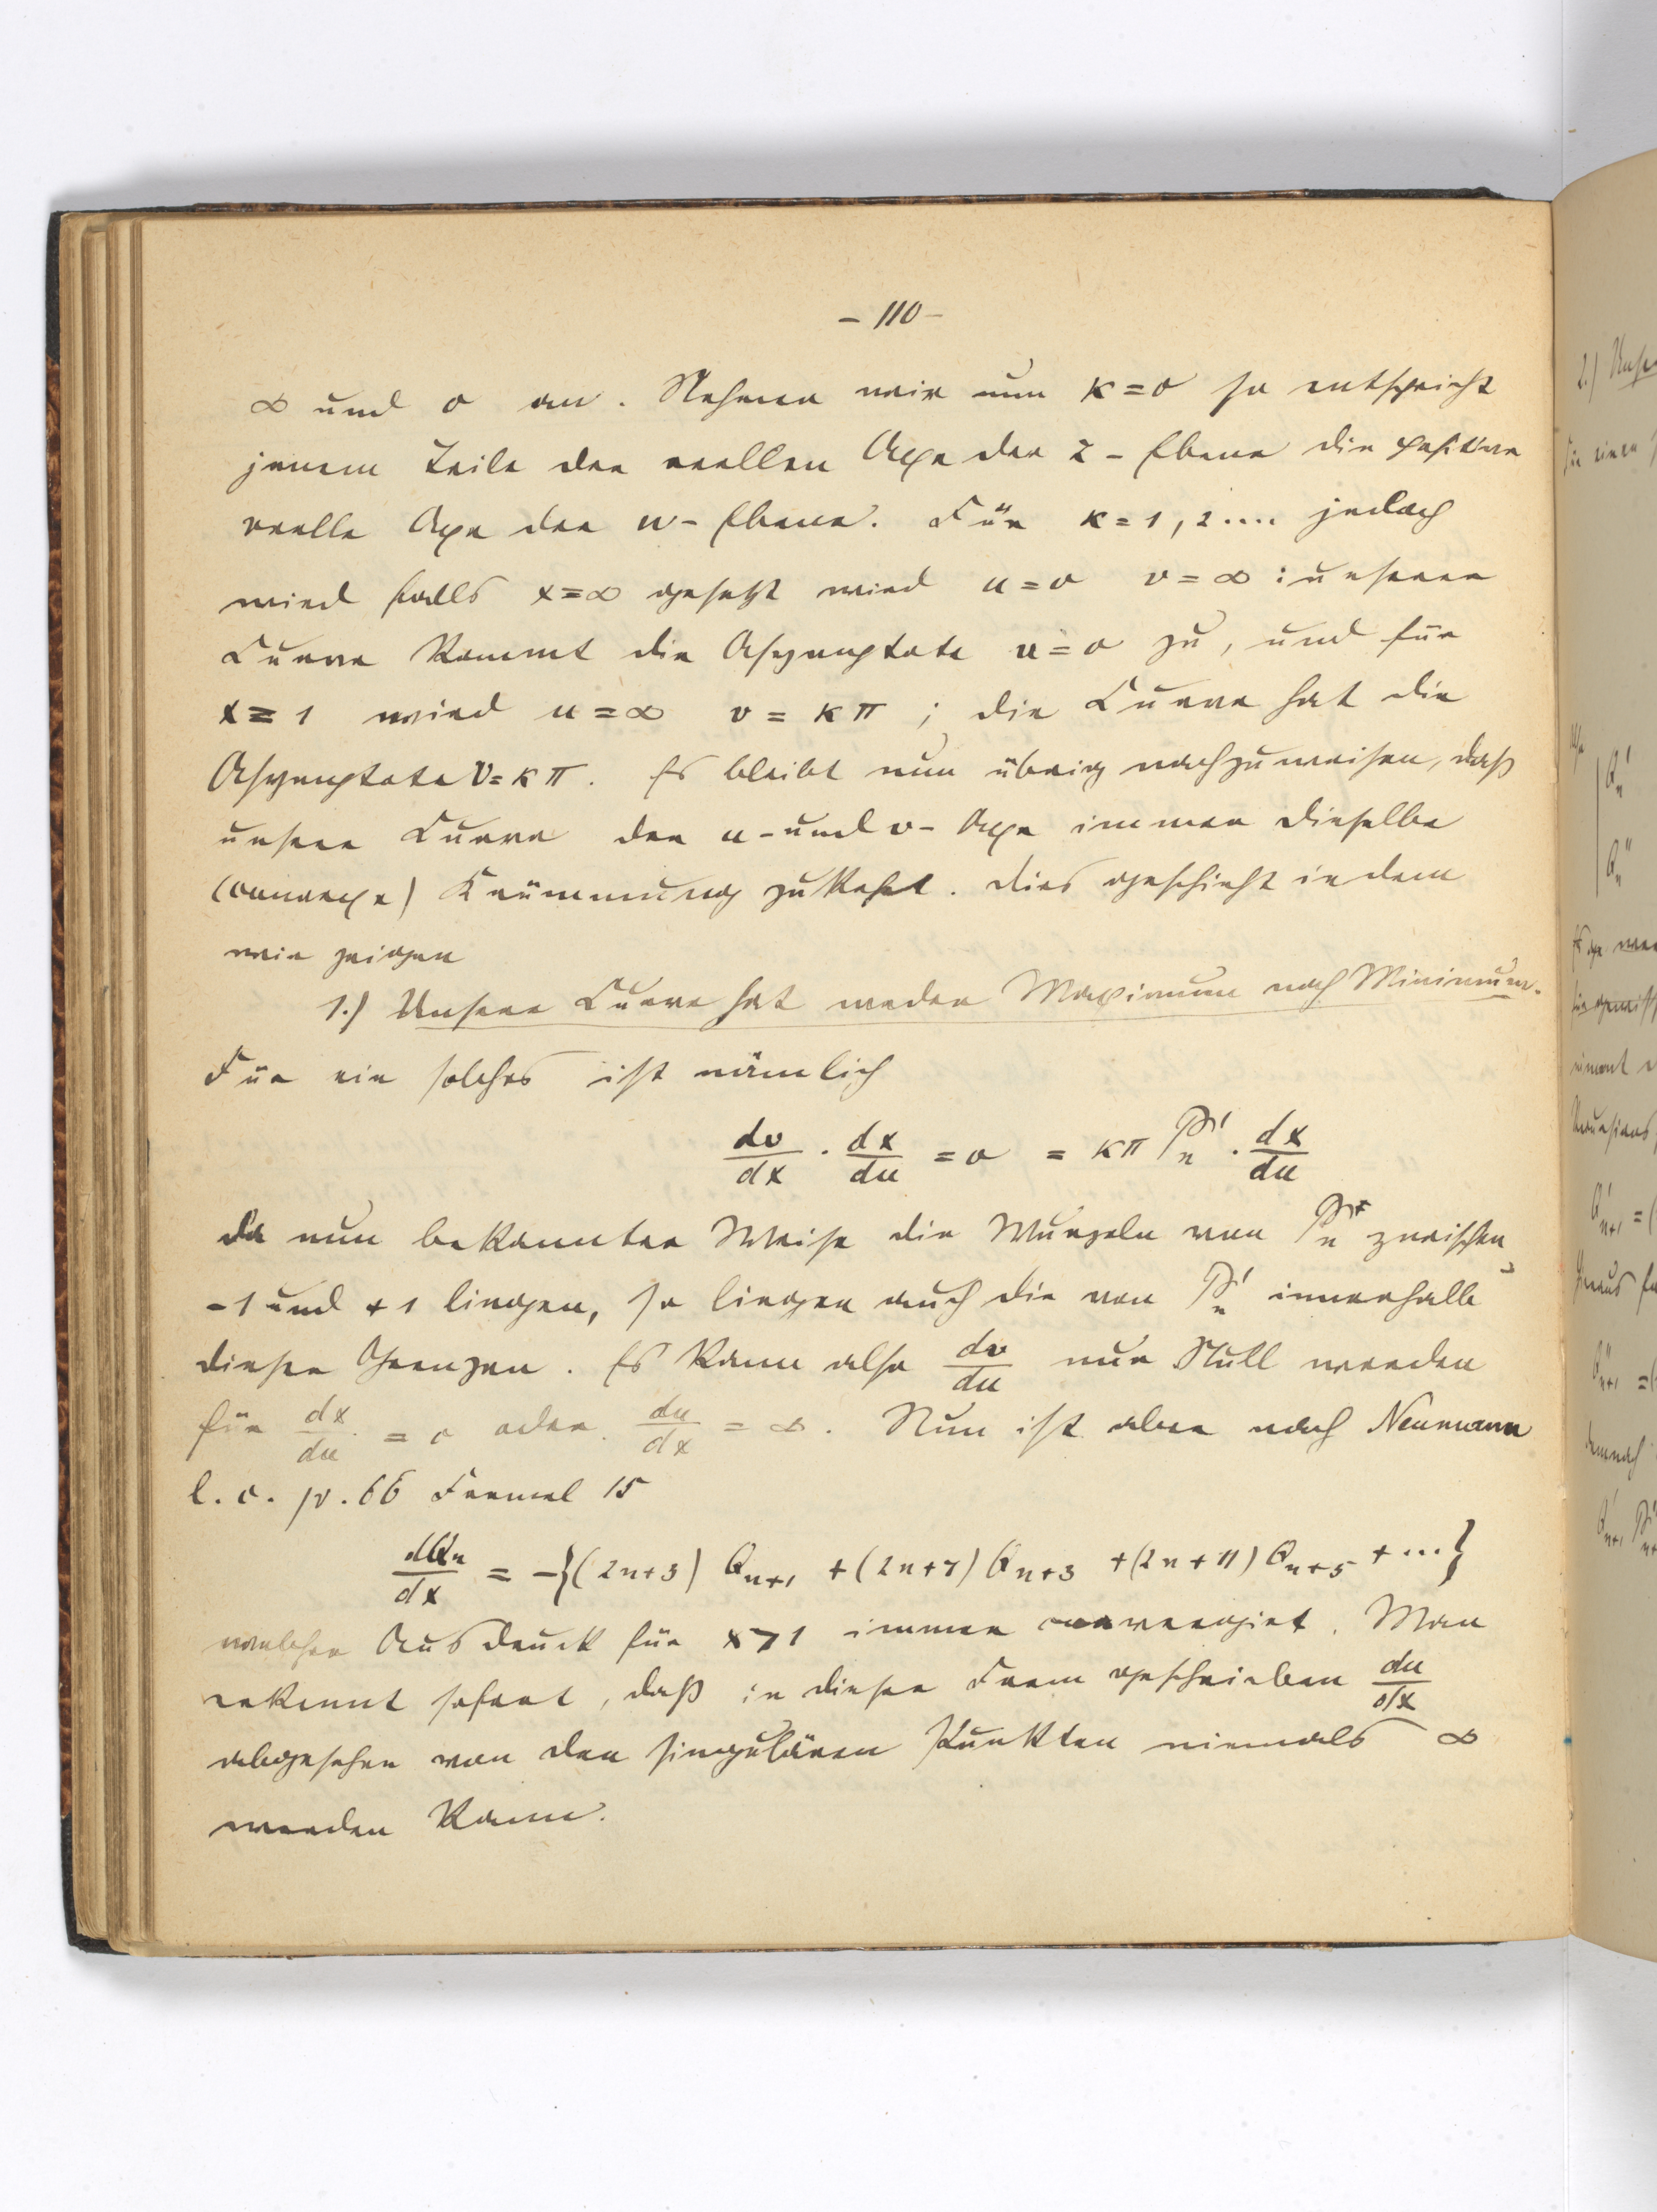 - 110 -
∞ und 0 an. Nehmen wir nun κ = 0 so entspricht
jenem Teile der reellen Axe der z - Ebene die positive
reelle Axe der w - Ebene. Für κ = 1, 2 .... jedoch
wird falls x = ∞ gesetzt wird u = 0 v = ∞ : unserer
Curve kommt die Asymptote u = 0 zu, und für
x = 1 wird u = ∞ v = κπ ; die Curve hat die
Asymptote v = κπ. Es bleibt nun übrig nachzuweisen, daß
unsere Curve der u - und v - Axe immer dieselbe
(convexe) Krümmung zukehrt. Dies geschieht indem
wir zeigen
1.) Unsere Curve hat weder Maximum noch Minimum.
Für ein solches ist nämlich
dv/dx · dx/du = 0 = κπ P'n · dx/du
Da nun bekannter Weise die Wurzeln von Pn zwischen
- 1 und + 1 liegen, so liegen auch die von P'n innerhalb
dieser Grenzen. Es kann also dv/du nur Null werden
für dx/du = 0 oder du/dx = ∞. Nun ist aber nach Neumann
l. c. p. 66 Formel 15
dQn/dx = -{(2n+3) Qn+1 + (2n+7) Qn+3 + (2n+11) Qn+5 + ...}
welcher Ausdruck für x > 1 immer convergirt. Man
erkennt sofort, daß in dieser Form geschrieben du/dx
abgesehen von den singulären Punkten niemals ∞
werden kann.